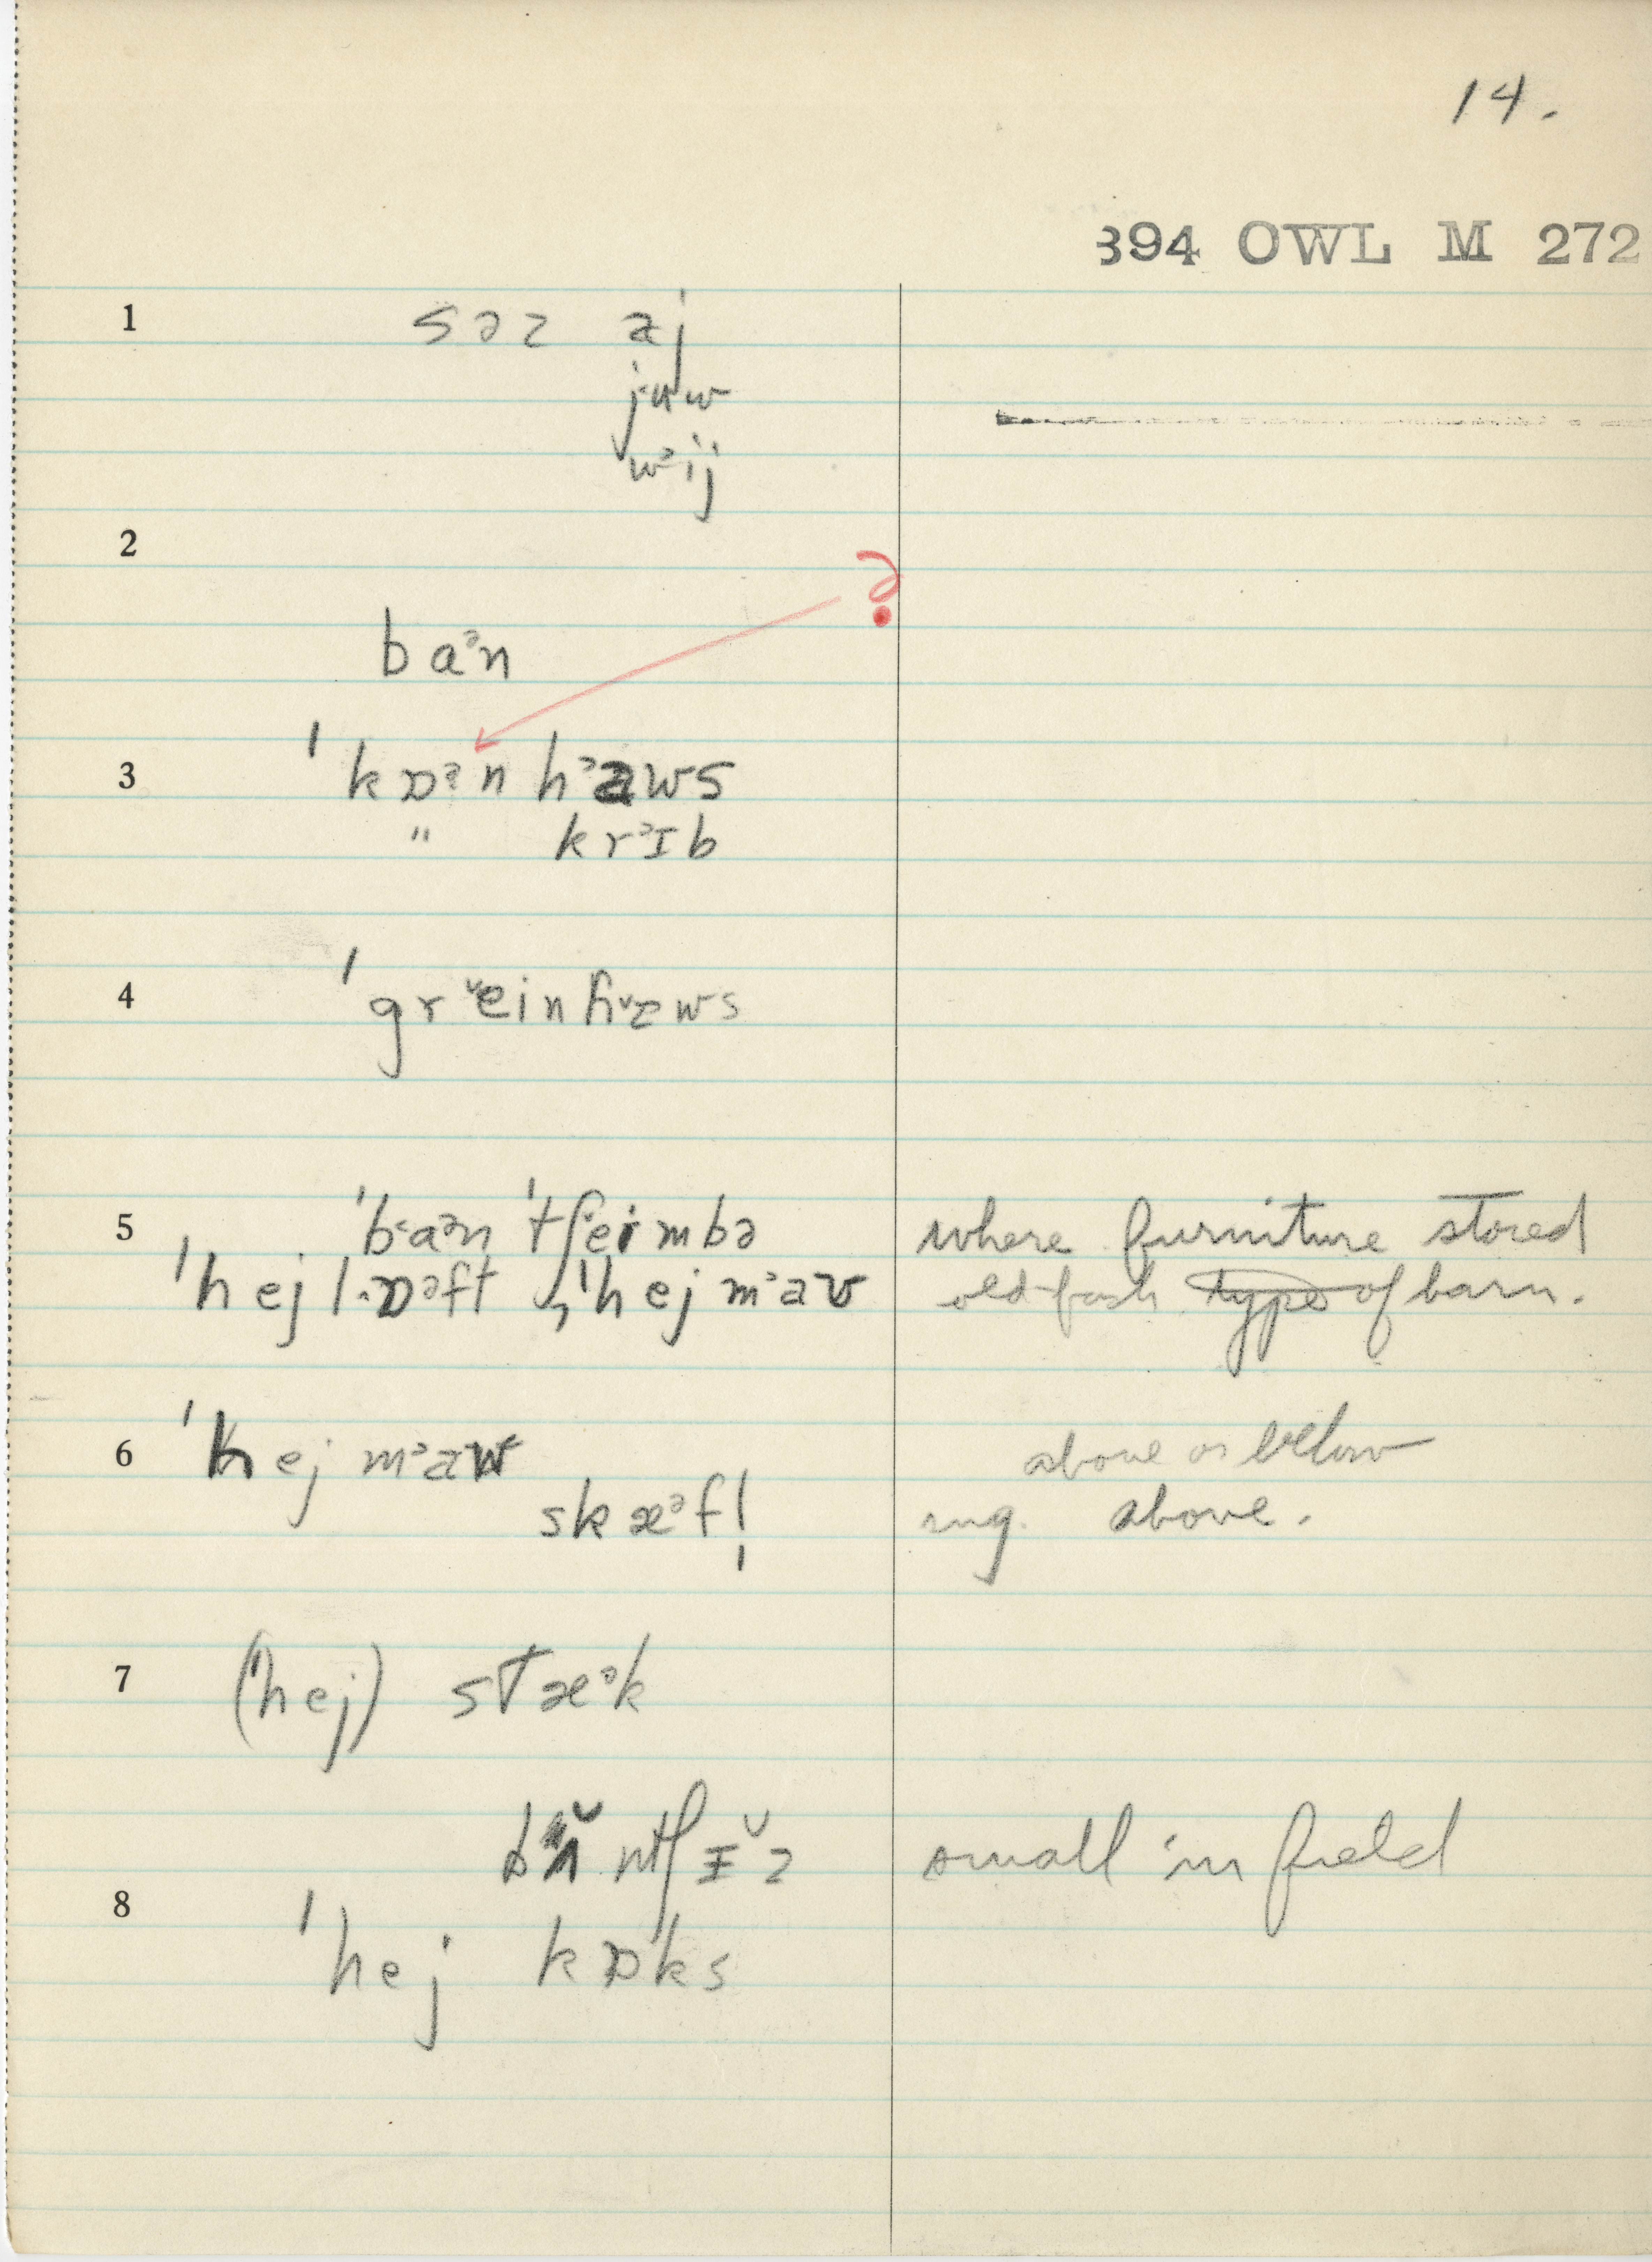 14.
394 OWL M 272
1 səz aj
juw
wᵊij
2
?
baᵊn
3 ˈkɒᵊn hᵊaws
" krᵊɪb
4 ˈgrˇeinhˇæws
5 ˈb·aᵊn ˈtʃeimbə where furniture stored
ˈhej l·ɒᵊft , ˈhej mᵊaʊ old-fash type of barn.
6 ˈhej mᵊaw above or below
skæᵊf! ing. above.
7 (ˈhej) stæᵊk
ntʃɪˇz small in field
8 ˈhej kɒks